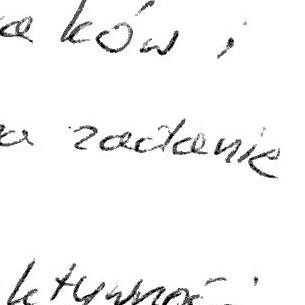 aków i
a zadanie
ktywności